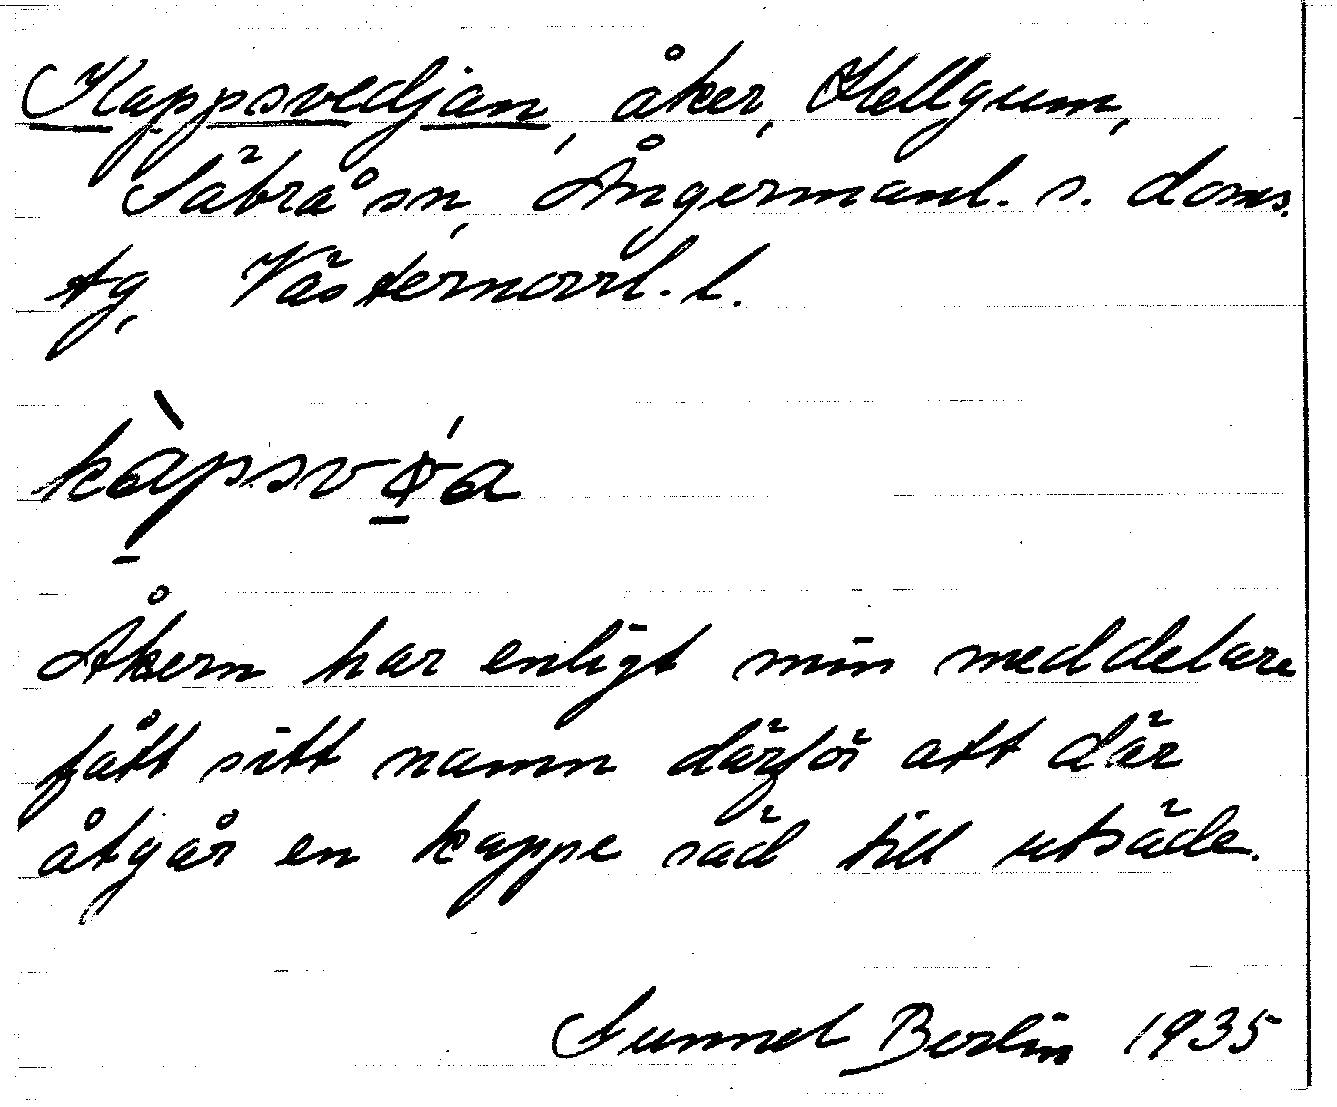 Kappsvedjan, åker, Hellgum,
Säbrå sn, Ångermanl. s. doms.
tg, Västernorrl. l.
kàpsvǿa
Åkern har enligt min meddelare
fått sitt namn därför att där
åtgår en kappe säd till utsäde.
Gunnel Berlin 1935